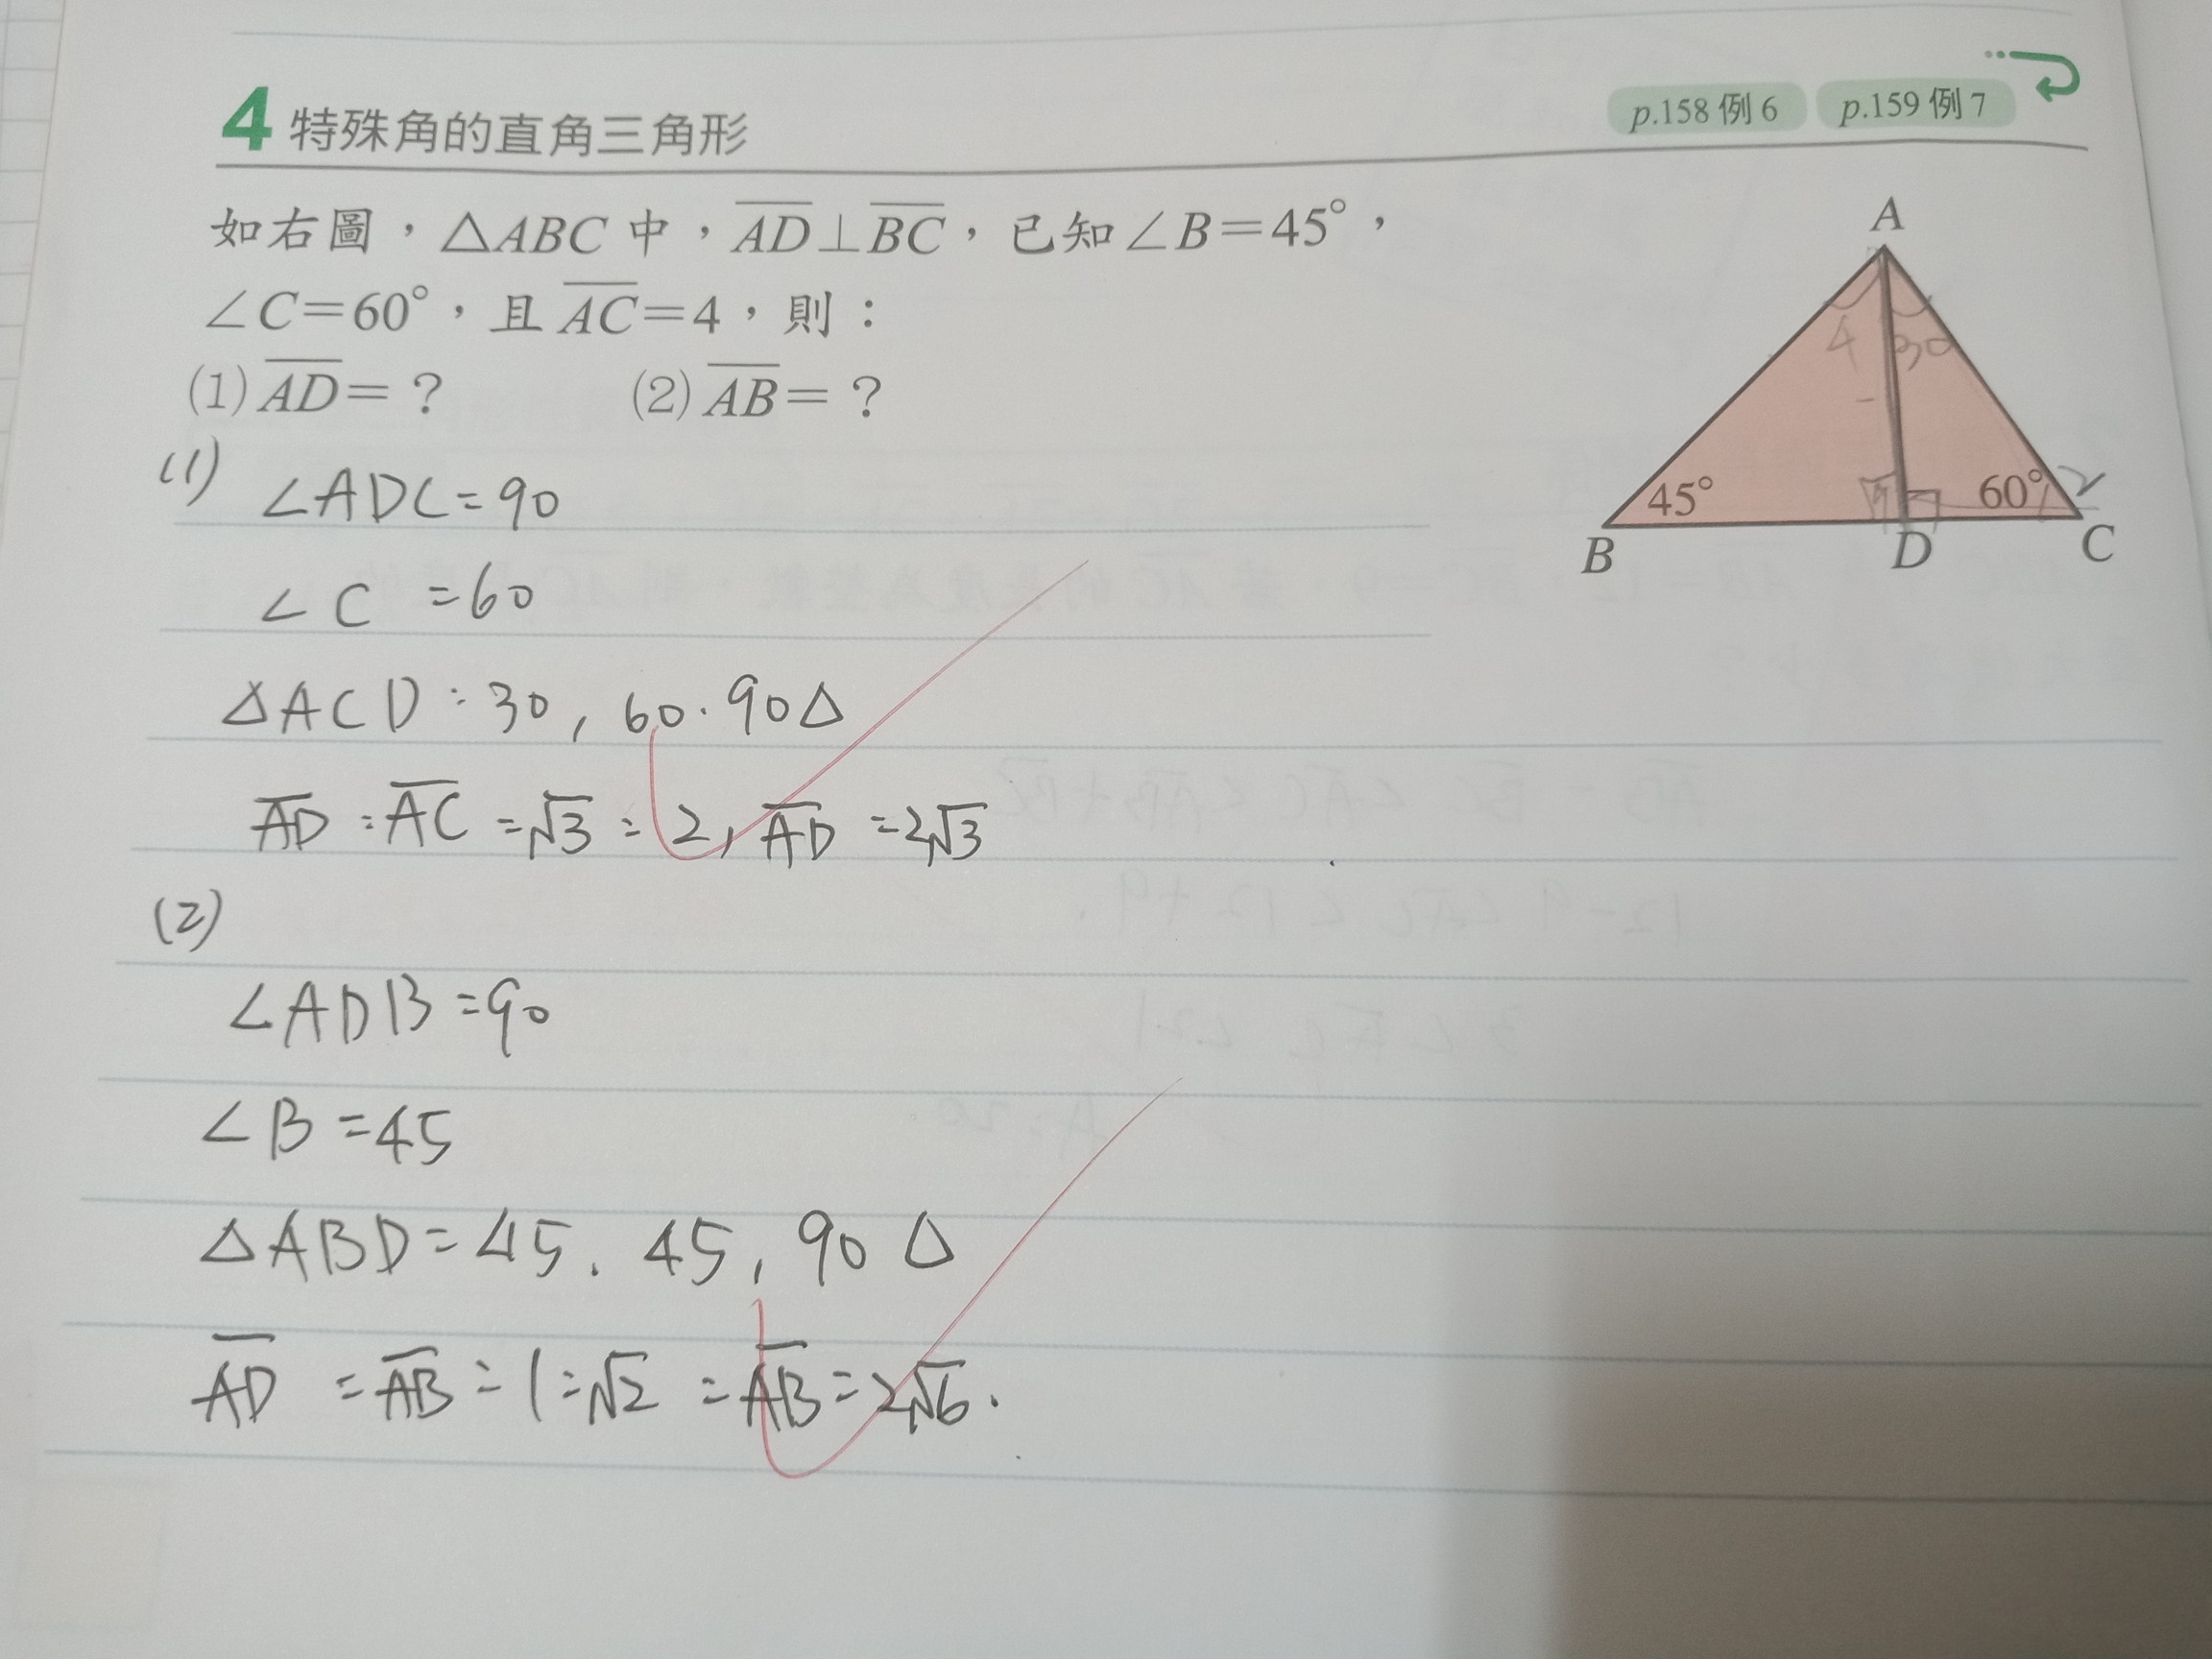 4 特殊角的直角三角形
p.158 例 6 p.159 例 7
如右圖，△ABC 中，AD⊥BC，已知∠B＝45°，
∠C＝60°，且 AC＝4，則：
(1) AD＝？ (2) AB＝？
A
30
45°
60°
B
D
C
(1) ∠ADC=90
∠C =60
△ACD : 30, 60. 90△
AD : AC = √3 : 2, AD = 2√3
(2)
∠ADB =90
∠B =45
△ABD = 45. 45, 90 △
AD = AB = 1 = √2 = AB = 2√6.